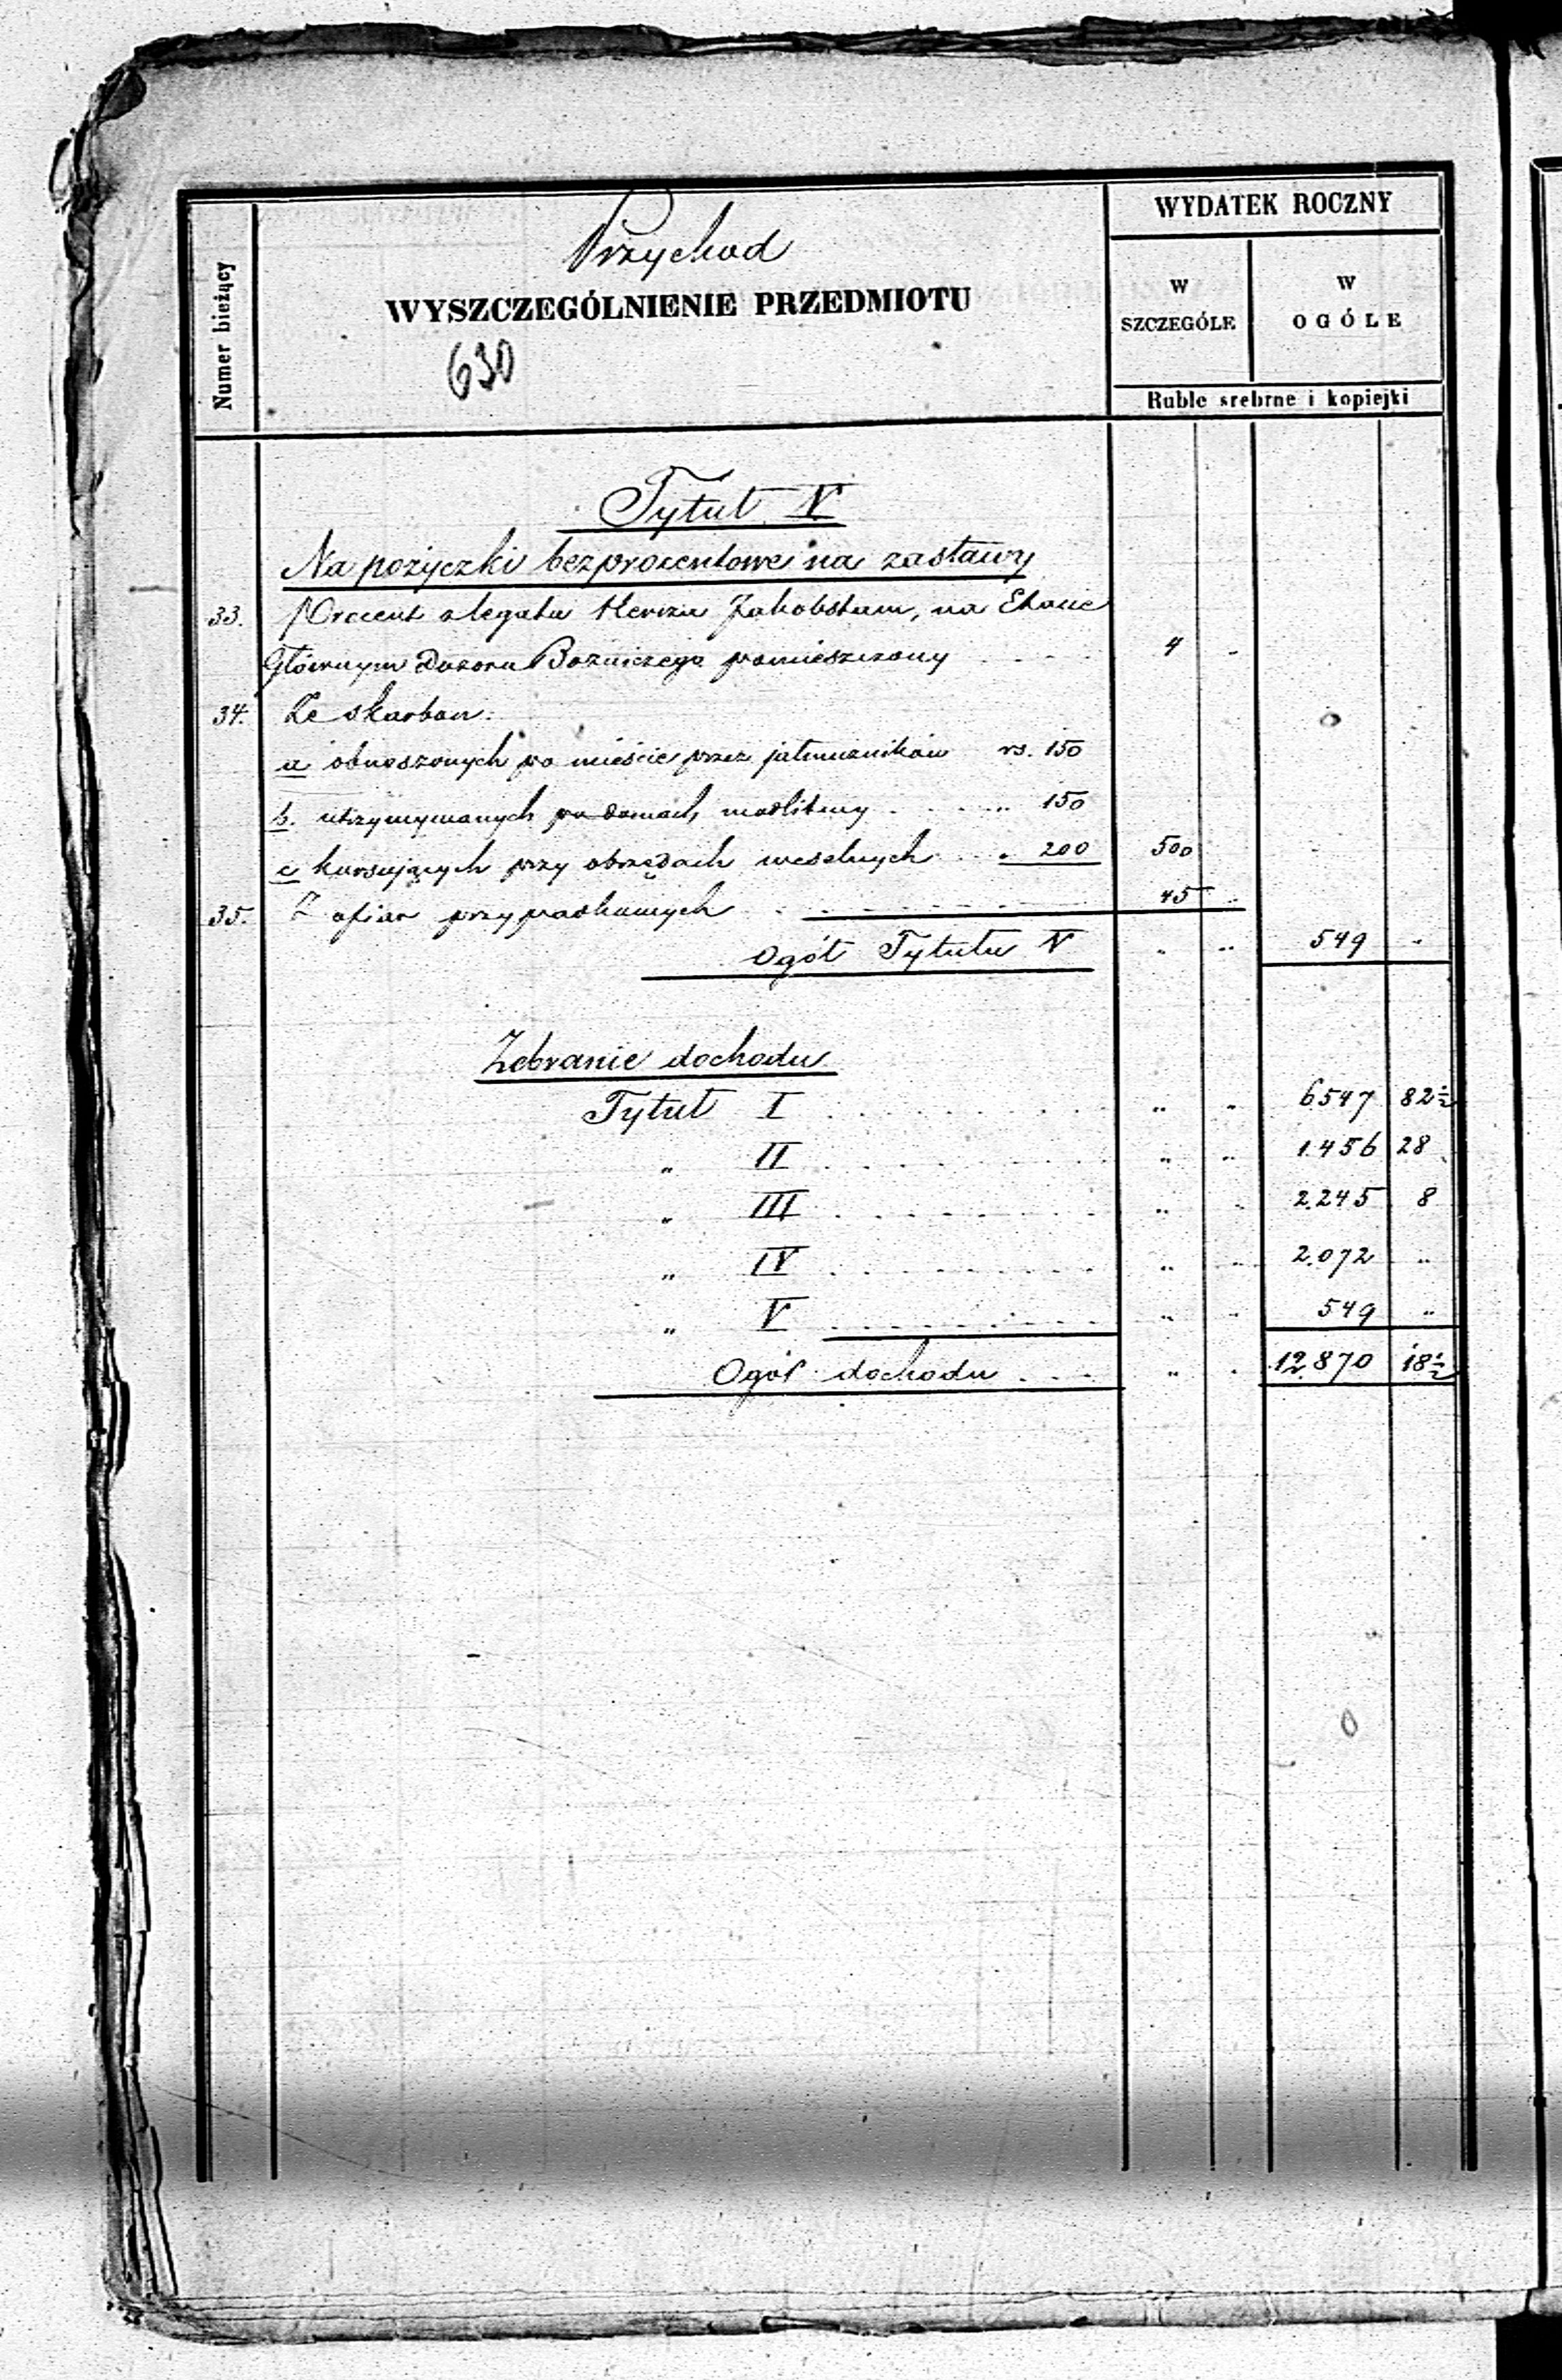 Przychod
WYSZCZEGÓLNIENIE PRZEDMIOTU
630
Numer bieżący
WYDATEK ROCZNY
W SZCZEGÓLE
W OGÓLE
Ruble srebrne i kopiejki
Tytuł V
Na pożyczki bezprocentowe na zastawy
33. Procent z legatu Hersza Jakobstam, na Etacie
Głównym Dozoru Bożniczego pomieszczony . . . . 4 -
34. Ze skarbon:
a obnoszonych po mieście przez jałmużników rs. 150
b. utrzymywanych po domach modlitwy . . . . " 150
c kursujących przy obrzędach weselnych . . . " 200 500
35. Z ofiar przypadkowych . . . . . . 45 "
Ogół Tytułu V " " 549 "
Zebranie dochodu
Tytuł I . . . . . . " " 6547 82½
" II . . . . . . " " 1.456 28
" III . . . . . . " " 2.245 8
" IV . . . . . . " " 2.072 "
" V . . . . . . " " 549 "
Ogół dochodu . . . " " 12.870 18½